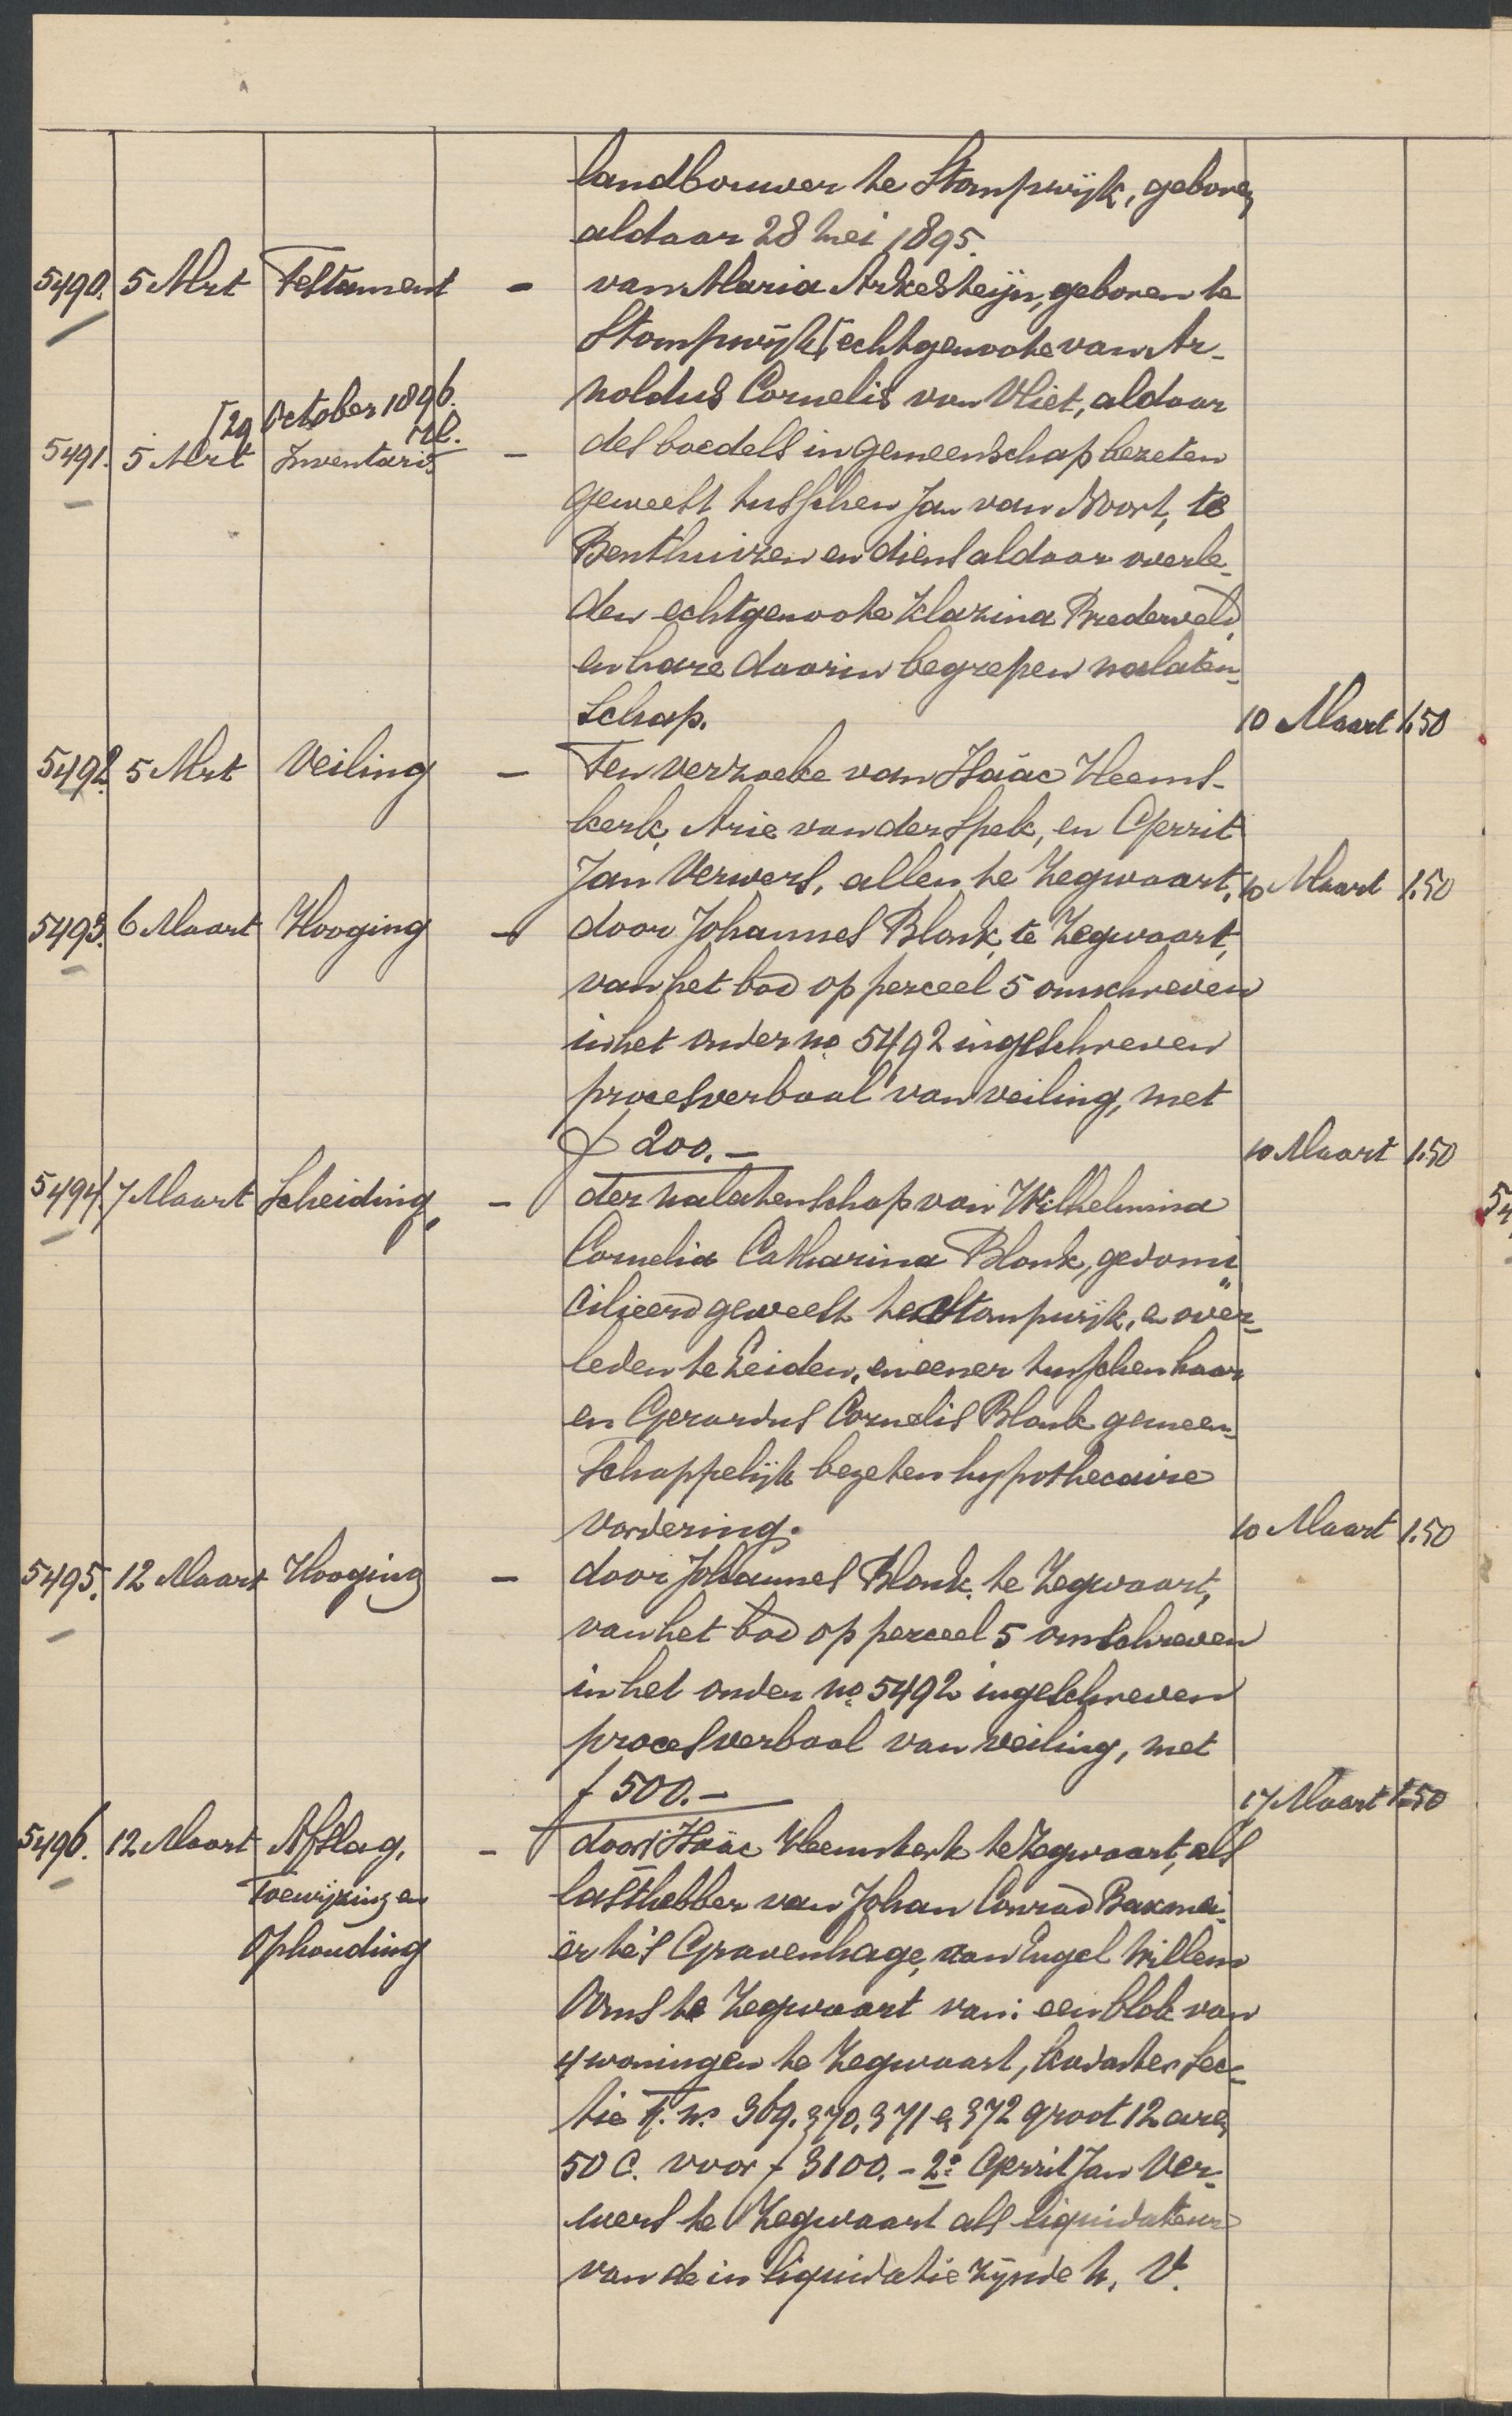 landbouwer te Stompwijk, geboren
aldaar 28 Mei 1895.
5490. 5 Mrt Testament - van Maria Arkesteijn, geboren te
Stompwijk [echtgenoote van Ar-
noldus Cornelis van Vliet, aldaar
[29 October 1896.
5491. 5 Mrt Inventaris - des boedels in gemeenschap bezeten
geweest tusschen Jan van Noort, te
Benthuizen en diens aldaar overle-
den echtgenoote Klazina Brederveld,
en hare daarin begrepen nalaten-
schap. 10 Maart 1.50
5492. 5 Mrt Veiling - Ten verzoeke van Isaäc Heems-
kerk, Arie van der Spek, en Gerrit
Jan Verwers, allen te Zegwaart. 10 Maart 1.50
5493. 6 Maart Hooging - door Johannes Blonk, te Zegwaart,
van het bod op perceel 5 omschreven
in het onder no 5492 ingeschreven
procesverbaal van veiling, met
f 200.- 10 Maart 1.50
5494. 7 Maart Scheiding, - der nalatenschap van Wilhelmina
Cornelia Catharina Blonk, gedomi
cilieerd geweest te Stompwijk, en over-
leden te Leiden, en eener tusschen haar
en Gerardus Cornelis Blonk gemeen-
schappelijk bezeten hypothecaire
vordering. 10 Maart 1.50
5495. 12 Maart Hooging - door Johannes Blonk, te Zegwaart,
van het bod op perceel 5 omschreven
in het onder no 5492 ingeschreven
procesverbaal van veiling, met
f 500.- 17 Maart 1.50
5496. 12 Maart Afslag, - door Isaäc Heemskerk te Zegwaart, als
Toewijzing en lasthebber van Johan Conrad Bakmei-
Ophouding er te 's Gravenhage, van Engel Willem
Ooms te Zegwaart van: een blok van
4 woningen te Zegwaart, kadaster Sec-
tie F. no 369, 370, 371 en 372 groot 12 aren
50 C. voor f 3100.- 2o Gerrit Jan Ver-
wers te Zegwaart als liquidateur
van de in liquidatie zijnde N. V.